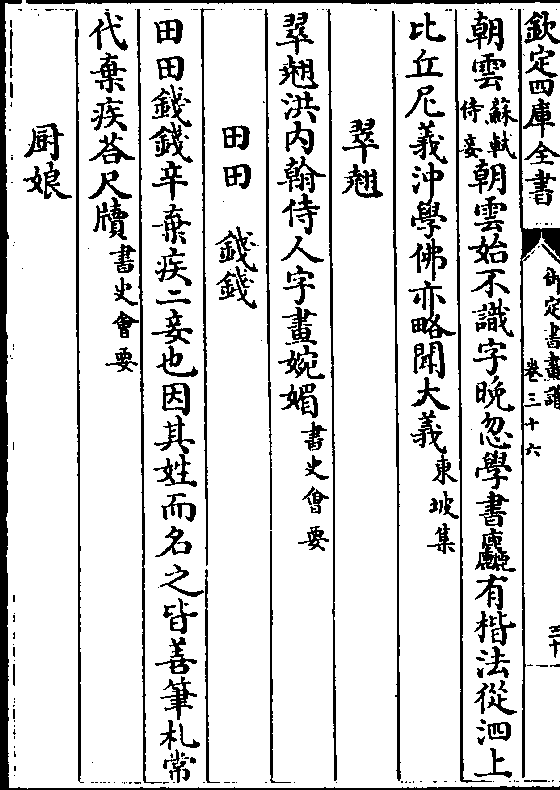 欽定四庫全書
御定書畫譜
卷三十六
三十
朝雲蘇軾侍妾朝雲始不識字晚忽學書麤有楷法從泗上
比丘尼義沖學佛亦略聞大義東坡集
翠翹
翠翹洪内翰侍人字畫婉媚書史會要
田田 錢錢
田田錢錢辛棄疾二妾也因其姓而名之皆善筆札常
代棄疾荅尺牘書史會要
厨娘